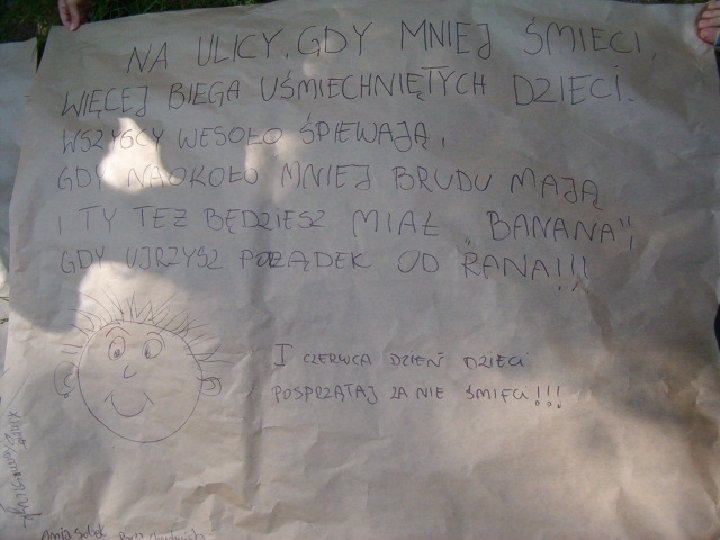 NA ULICY, GDY MNIEJ ŚMIECI,
WIĘCEJ BIEGA UŚMIECHNIĘTYCH DZIECI.
WSZYSCY WESOŁO ŚPIEWAJĄ,
GDY NAOKOŁO MNIEJ BRUDU MAJĄ
I TY TEŻ BĘDZIESZ MIAŁ „BANANA",
GDY UJRZYSZ PORZĄDEK OD RANA!!!
I CZERWCA DZIEŃ DZIECI
POSPRZĄTAJ ZA NIE ŚMIECI!!!
Ania